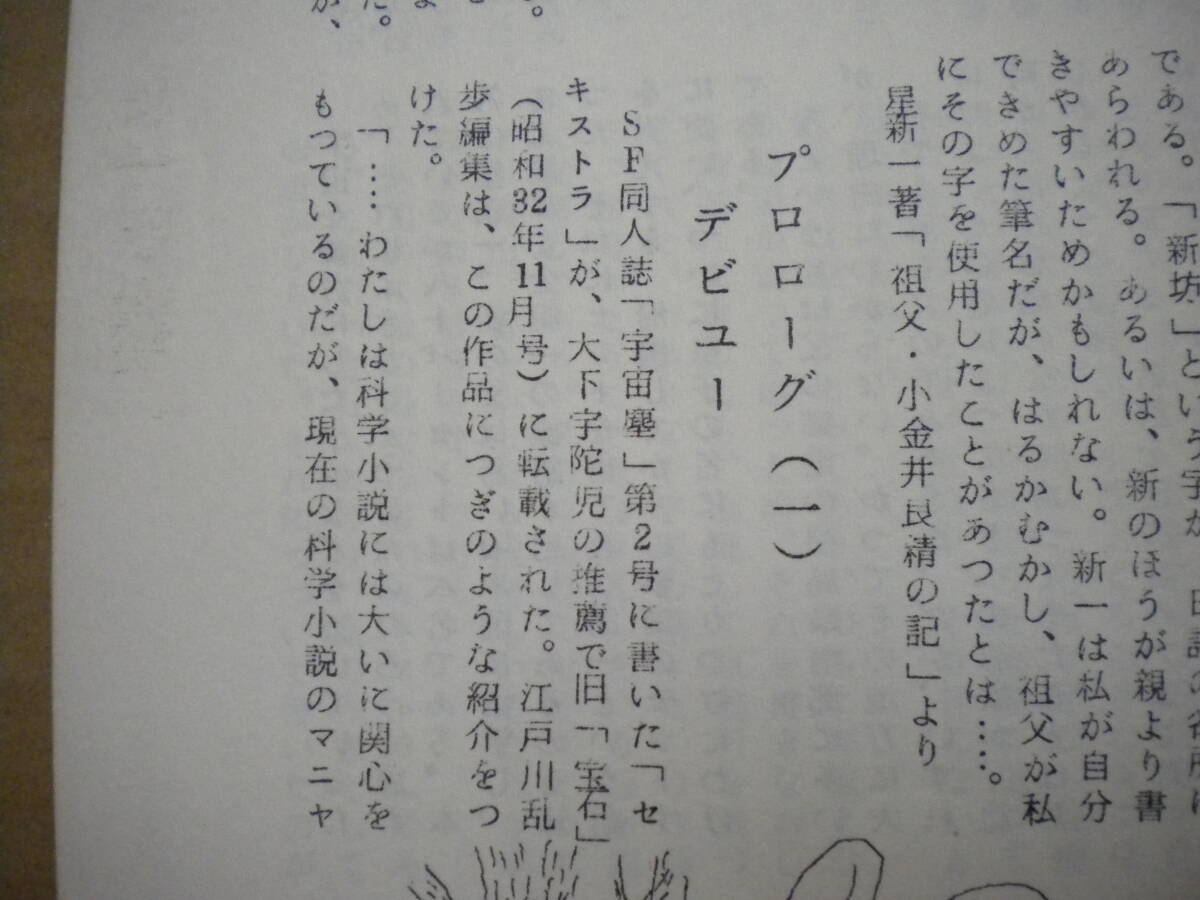 である。「新坊」という字が
あらわれる。あるいは、新のほうが親より書
きやすいためかもしれない。新一は私が自分
できめた筆名だが、はるかむかし、祖父が私
にその字を使用したことがあつたとは…。
星新一著「祖父・小金井良精の記」より
プロローグ（一）
デビユー
SF同人誌「宇宙塵」第2号に書いた「セ
キストラ」が、大下宇陀児の推薦で旧「宝石」
（昭和32年11月号）に転載された。江戸川乱
歩編集は、この作品につぎのような紹介をつ
けた。
「…わたしは科学小説には大いに関心を
もつているのだが、現在の科学小説のマニヤ
。
た。
が、